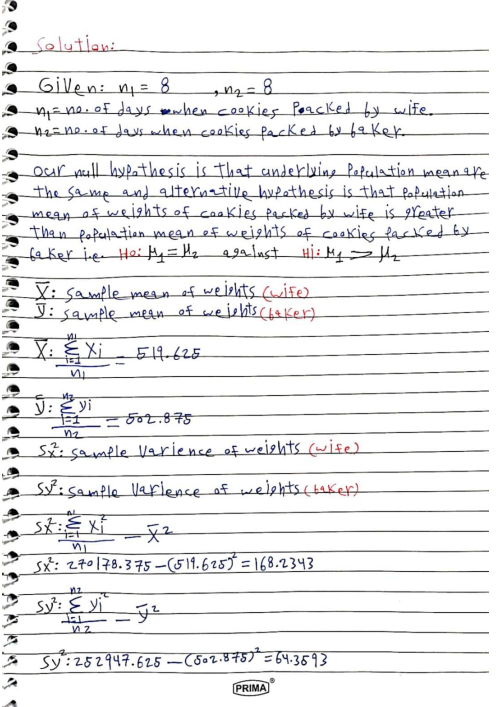 Solution:
Given: n1 = 8 , n2 = 8
n1 = no. of days when cookies Packed by wife.
n2 = no. of days when cookies Packed by baker.
our null hypothesis is that underlying Population mean are
the same and alternative hypothesis is that population
mean of weights of cookies packed by wife is greater
than population mean of weights of cookies packed by
baker i.e. Ho: μ1 = μ2 against Hi: μ1 > μ2
X̄: sample mean of weights (wife)
ȳ: sample mean of weights (baker)
X̄: Σ_{i=1}^{n1} Xi / n1 = 519.625
ȳ: Σ_{i=1}^{n2} yi / n2 = 502.875
Sx²: sample Varience of weights (wife)
Sy²: sample Varience of weights (baker)
Sx²: Σ_{i=1}^{n1} Xi² / n1 - X̄²
Sx²: 270178.375 - (519.625)² = 168.2343
Sy²: Σ_{i=1}^{n2} yi² / n2 - ȳ²
Sy²: 252947.625 - (502.875)² = 64.3593
PRIMA®